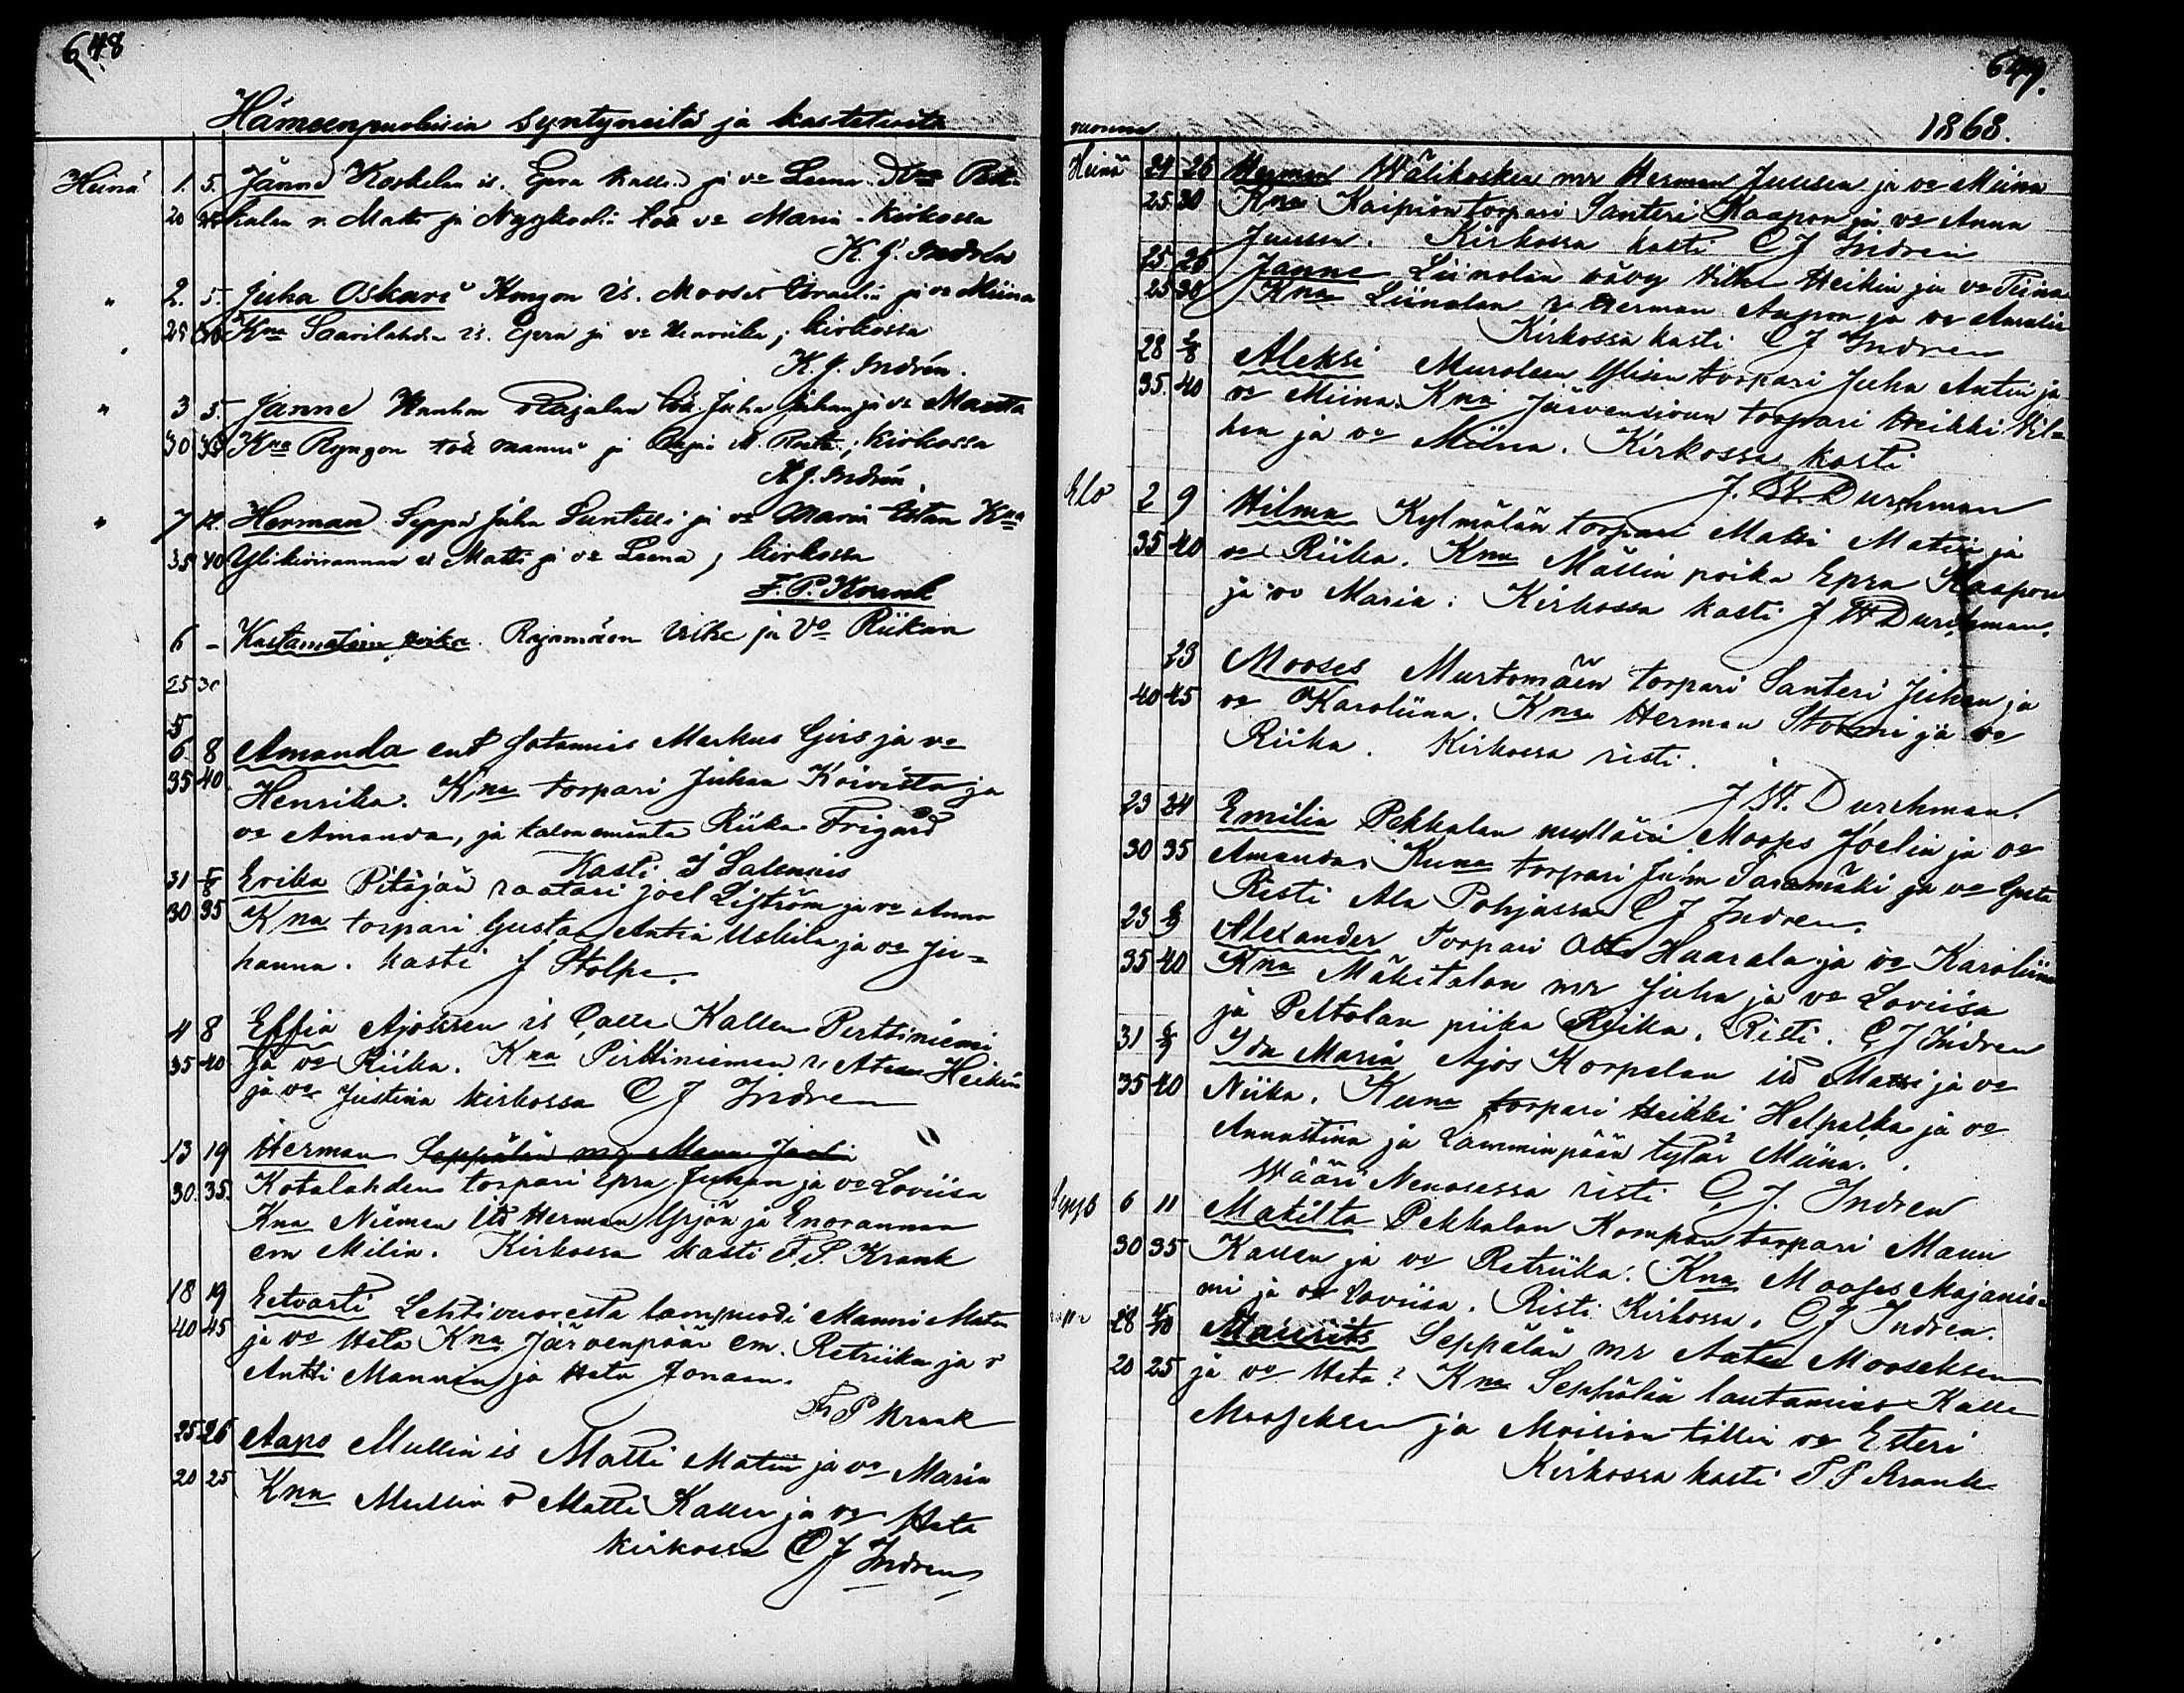 648
Hämeenpuolisia syntyneitä ja kastetuita
Heinä 1. 5. Janne Koskelan is. Epra Kalle ja vo Leena. Kna
20 kalan r. Matti ja Nyykoolii vo Maria - Kirkossa
K. J. Indrén
" 2. 5. Juha Oskari Kongon is. Mooses Israelin ja vo Miina
25 30 Kna Saarilahden is. Epra ja vo Henriika; kirkossa
K. J. Indrén.
" 3 5. Janne Wanhan Rajalan Juha Juhan ja vo Maria
30 35 Kna Ryngon Manni ja; kirkossa
K. J. Indrén
" 7 12. Herman Seppä Juha Suntelli ja vo Maria Kna
35 40 Ylikivirannan is Matti ja vo Leena; kirkossa
F. P. Krank
6 - Kastamatoin poika. Rajamäen Wilhe ja Vo Riikan
25 30
5
6. 8 Amanda ent Jotamies Markus Girs ja vo
35 40 Henrika. Kna torpari Juhan Koivista ja
vo Amanda, ja talon emäntä Riika Frigård
Kasti J Salenius
31 5/8 Erika Pitäjän raatari Joel Liström ja vo Anna
30 35 Kna torpari Gusta Antin Uskila ja vo Ju=
hanna. kasti J Stolpe.
4 8 Effia Ajossen is Calle Kallen Perttiniemi
35 40 ja vo Riika. Kna Pirttiniemen r. Heikin
ja vo Justina kirkossa C J Indren
13 19 Herman Seppälän mr Manu Joelin
30. 35. Kotalahden torpari Epra Juhan ja vo Loviisa
Kna Niemen itd Herman Yrjön ja Enorannan
em Milia. Kirkossa kasti F. P. Krank
18 19 Eetvarti Lehtivuoresta lampuodi Manni Matin
40 45 ja vo Heta Kna Järvenpään em. Retriika ja r
Antti Mannin ja Heta Jonaan.
F. P Krank
25 26 Aapo Mullin is Matti Matin ja vo Maria
20 25 Kna Mullin r Matti Kallen ja vo Heta
kirkossa C J Indren
649.
vuonna 1868.
Heinä 24 26 Herman Wälikosken mr Herman Juusen ja vo Miina
25 30 Kna Kaipion torpari Santeri Kaapon ja vo Anna
Juussa. Kirkossa kasti C J Indren
25. 26 Janne Liinolan vävy Wilhe Heikin ja vo Tiina
25 30 Kna Liinolan r Herman Aapon ja vo Amalia
Kirkossa kasti C J Indren
28 2/8 Aleksi Muroleen Ylisen torpari Juha Antin ja
35. 40 vo Miina. Kna Järvensivun torpari Heikki Wil=
hen ja vo Miina. Kirkossa kasti
J. W. Durchman
Elo 2 9 Hilma Kylmälän torpari Matti Matin ja
35 40 vo Riika. Kna Mällin poika Epra Kaapon
ja vo Maria. Kirkossa kasti J W Durchman.
23 Mooses Murtomäen torpari Santeri Juhan ja
40 45 vo Karoliina. Kna Herman Stormi ja vo
Riika. Kirkossa risti.
J. W. Durchman.
23 24 Emilia Pekkalan mylläri Moops Joelin ja vo
30 35 Amanda. Kuna torpari Juha Saramäki ja vo Gusta
Risti Ala Pohjassa C J Indren.
23 6/9 Alexander Torpari Otto Haarala ja vo Karoliina
35 40 Kna Mäkitalon mr Juha ja vo Loviisa
ja Peltolan piika Riika. Risti. C J Indren
31 6/9 Ida Maria Ajos Korpelan itd Matti ja vo
35 40 Niika. Kuna torpari Heikki Helpalka ja vo
Annastina ja Lamminpään tytär Miina.
Wääri Nenosessa risti C. J. Indren
Syys 6 11 Matilta Pekkalan Kompan torpari Maun
30 35 Kallen ja vo Retriika. Kna Mooses Majanie=
mi ja vo Loviisa. Risti Kirkossa. C J Indren.
28 4/10 Maurits Seppälän mr Antu Mooseksen
20 25 ja vo Heta? Kna Seppälän lautamies Kalle
Mooseksen ja Moision tillin vo Esteri
Kirkossa kasti F P Krank